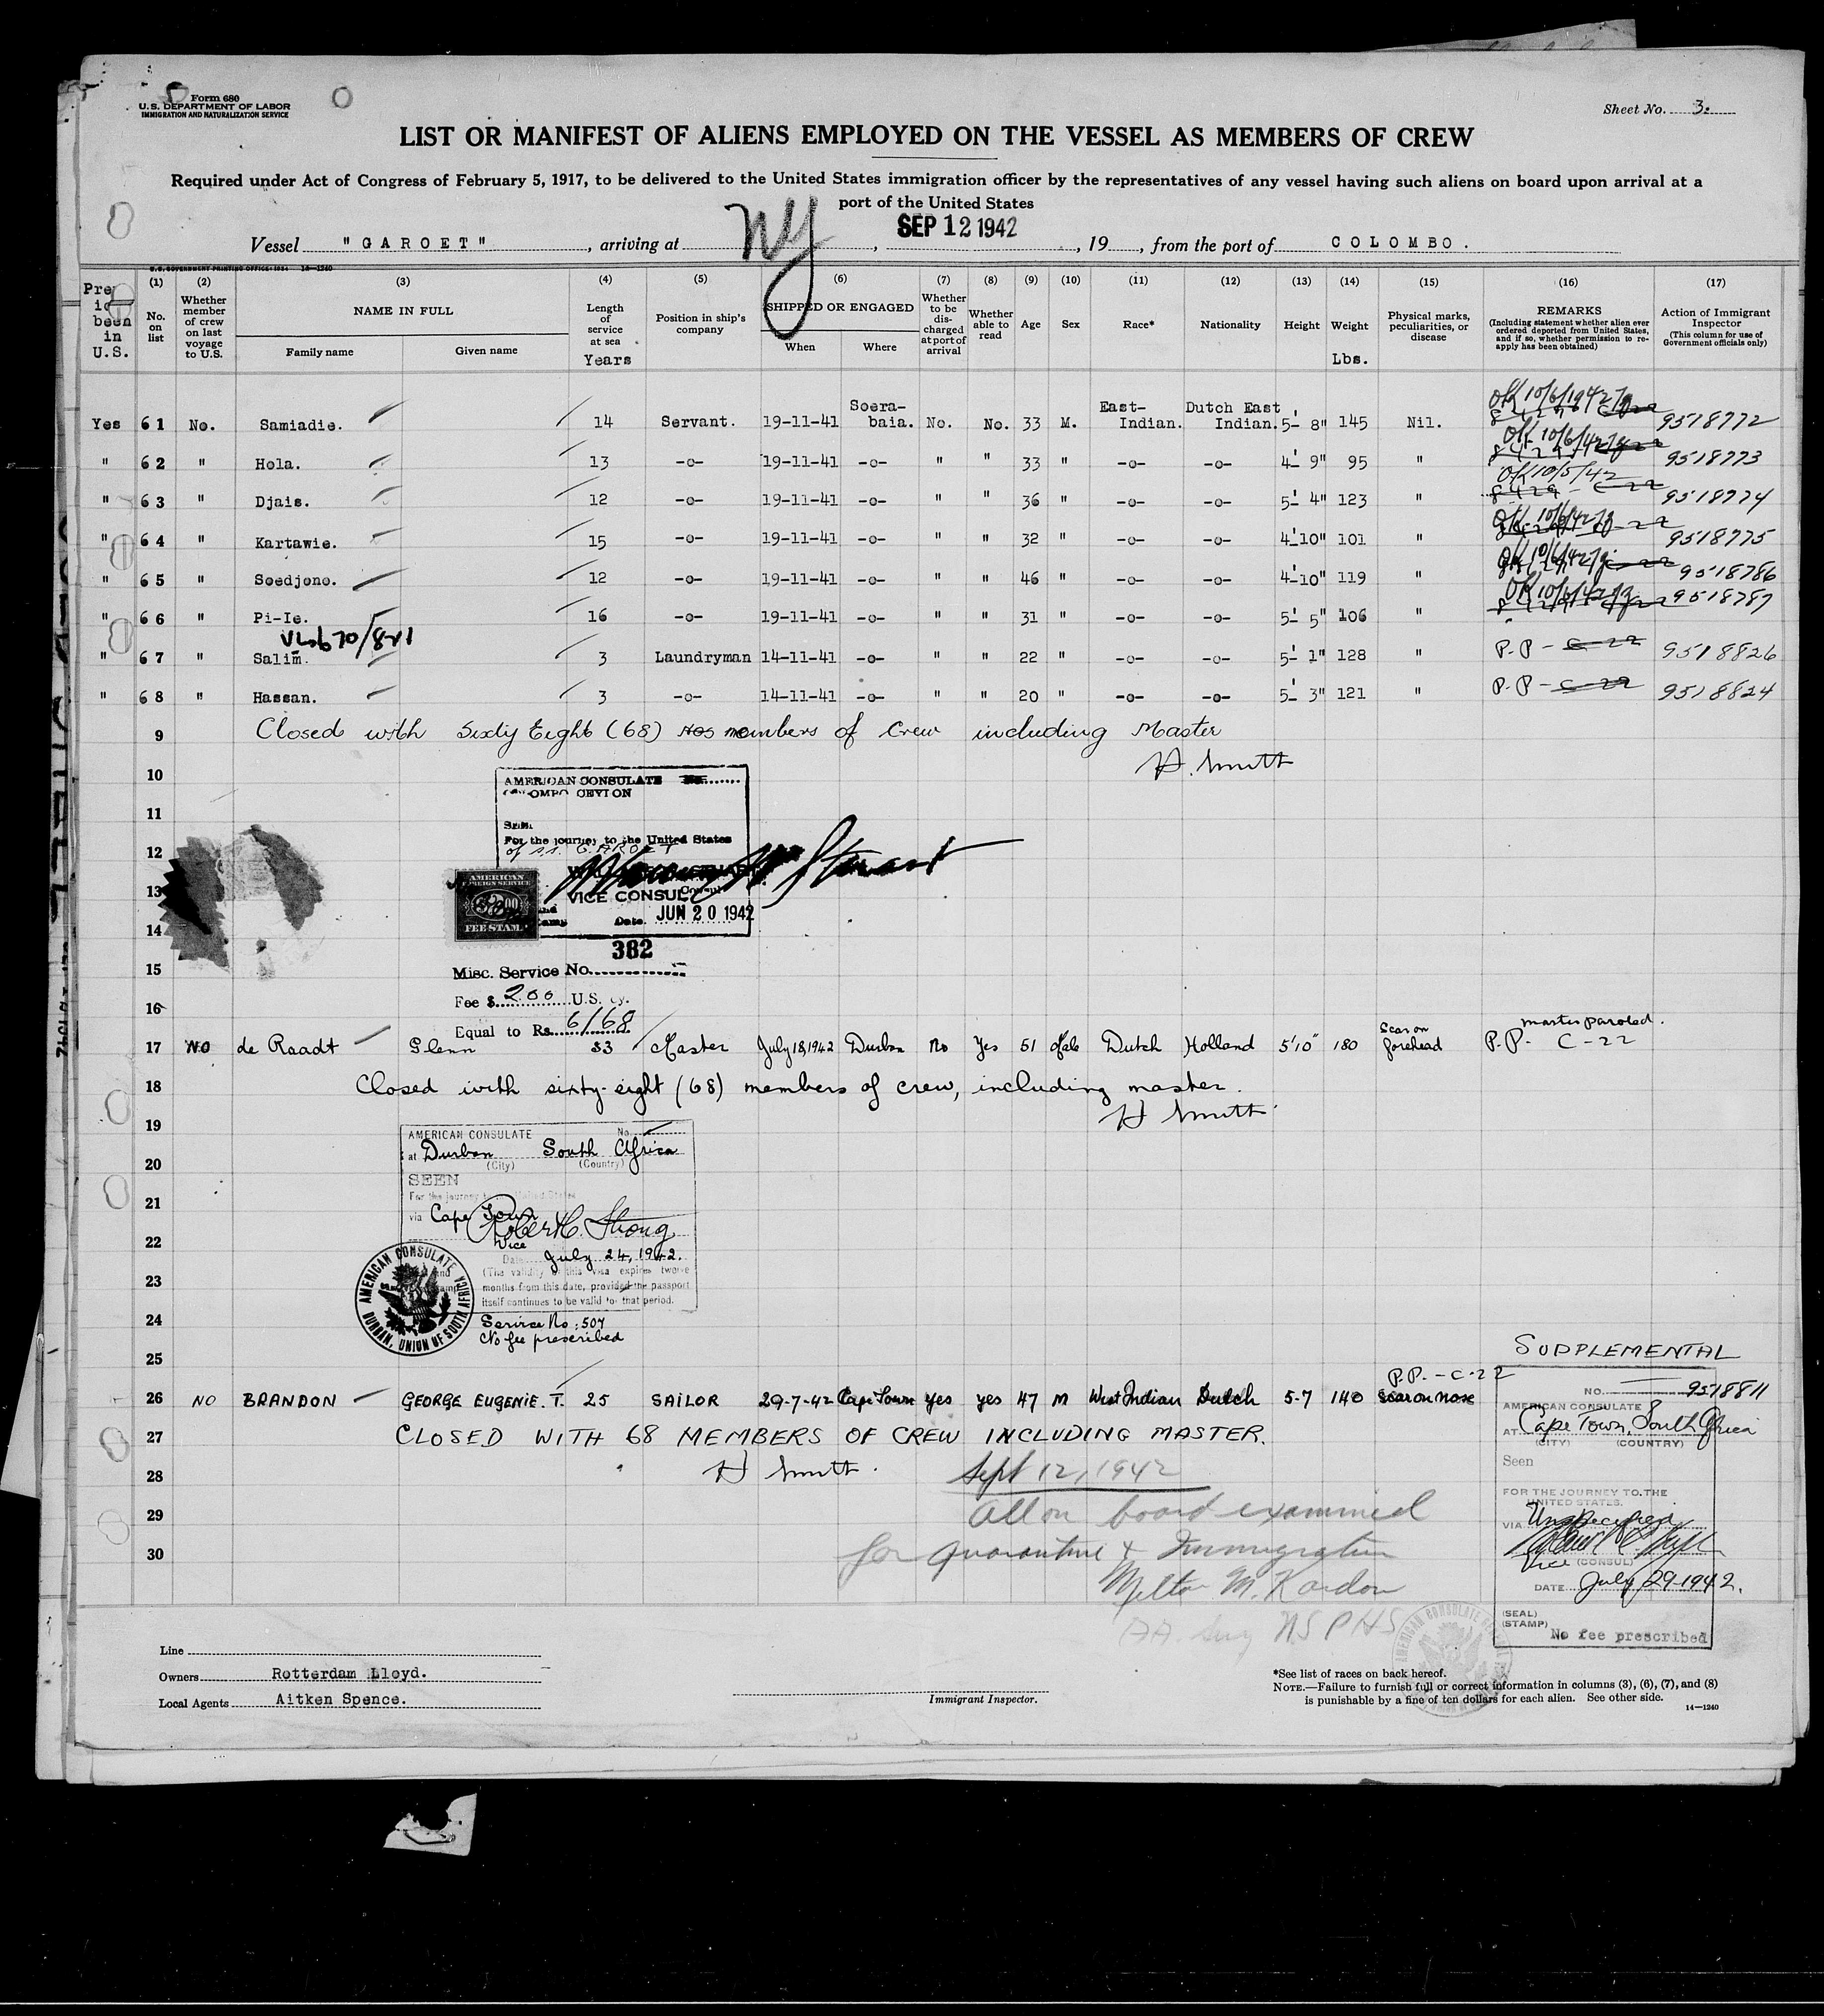 Form 680
U.S. DEPARTMENT OF LABOR
IMMIGRATION AND NATURALIZATION SERVICE
Sheet No. 3.
LIST OR MANIFEST OF ALIENS EMPLOYED ON THE VESSEL AS MEMBERS OF CREW
Required under Act of Congress of February 5, 1917, to be delivered to the United States immigration officer by the representatives of any vessel having such aliens on board upon arrival at a
port of the United States
Vessel "GAROET", arriving at NY, SEP 12 1942, 19, from the port of COLOMBO.
U.S. GOVERNMENT PRINTING OFFICE: 1934 14—1240
been in U.S.
(1) No. on list
(2) Whether member of crew on last voyage to U.S.
(3) NAME IN FULL Family name Given name
(4) Length of service at sea Years
(5) Position in ship's company
(6) SHIPPED OR ENGAGED When Where
(7) Whether to be discharged at port of arrival
(8) Whether able to read
(9) Age
(10) Sex
(11) Race*
(12) Nationality
(13) Height
(14) Weight Lbs.
(15) Physical marks, peculiarities, or disease
(16) REMARKS (Including statement whether alien ever ordered deported from United States, and if so, whether permission to reapply has been obtained)
(17) Action of Immigrant Inspector (This column for use of Government officials only)
Yes 61 No. Samiadie. 14 Servant. 19-11-41 Soerabaia. No. No. 33 M. East-Indian. Dutch East Indian. 5' 8" 145 Nil. OK 10/6/1942 9518772
" 62 " Hola. 13 -o- 19-11-41 -o- " " 33 " -o- -o- 4' 9" 95 " OK 10/6/42 9518773
" 63 " Djais. 12 -o- 19-11-41 -o- " " 36 " -o- -o- 5' 4" 123 " OK 10/5/42 9518774
" 64 " Kartawie. 15 -o- 19-11-41 -o- " " 32 " -o- -o- 4'10" 101 " OK 10/6/42 9518775
" 65 " Soedjono. 12 -o- 19-11-41 -o- " " 46 " -o- -o- 4'10" 119 " OK 10/6/42 9518786
" 66 " Pi-Ie. 16 -o- 19-11-41 -o- " " 31 " -o- -o- 5' 5" 106 " OK 10/6/42 9518787
" 67 " Salim. 3 Laundryman 14-11-41 -o- " " 22 " -o- -o- 5' 1" 128 " P.P - C-22 9518826
" 68 " Hassan. 3 -o- 14-11-41 -o- " " 20 " -o- -o- 5' 3" 121 " P.P - C-22 9518824
9 Closed with Sixty Eight (68) members of Crew including Master
H. Smitt
10
AMERICAN CONSULATE No.
11
For the journey to the United States
of s.s. GAROET
12
13
AMERICAN FOREIGN SERVICE
FEE STAMP
VICE CONSUL
Date JUN 20 1942
14
382
15
Misc. Service No.
16
Fee $ 2.00 U.S. cy.
Equal to Rs. 6/68
17 No de Raadt Glenn 33 Master July 18, 1942 Durban No Yes 51 Male Dutch Holland 5'10" 180 Scar on forehead P.P. C-22 master paroled.
18 Closed with sixty-eight (68) members of crew, including master.
H Smitt
19
AMERICAN CONSULATE No.
at Durban South Africa
20
(City) (Country)
SEEN
21
For the journey to the United States
via Cape Town
Robert C. Strong
22
Vice
Date July 24, 1942.
23
(The validity of this visa expires twelve months from this date, provided the passport itself continues to be valid for that period.
AMERICAN CONSULATE DURBAN, UNION OF SOUTH AFRICA
24
Service No: 507
No fee prescribed
25
26 NO BRANDON GEORGE EUGENIE. T. 25 SAILOR 29-7-42 Cape Town yes yes 47 M West Indian Dutch 5-7 140 Scar on nose P.P. - C-22
27 CLOSED WITH 68 MEMBERS OF CREW INCLUDING MASTER.
28 H Smitt.
Sept 12, 1942
29 All on board examined
30 for quarantine & Immigration
Milton M. Kardon
SUPPLEMENTAL
NO. 9518811
AMERICAN CONSULATE
AT Cape Town, South Africa
(CITY) (COUNTRY)
Seen
FOR THE JOURNEY TO THE UNITED STATES.
VIA Unspecified
Vice (CONSUL)
DATE July 29-1942.
(SEAL)
(STAMP)
No fee prescribed
Line
Owners Rotterdam Lloyd.
Local Agents Aitken Spence.
Immigrant Inspector.
*See list of races on back hereof.
NOTE.—Failure to furnish full or correct information in columns (3), (6), (7), and (8)
is punishable by a fine of ten dollars for each alien. See other side.
14—1240